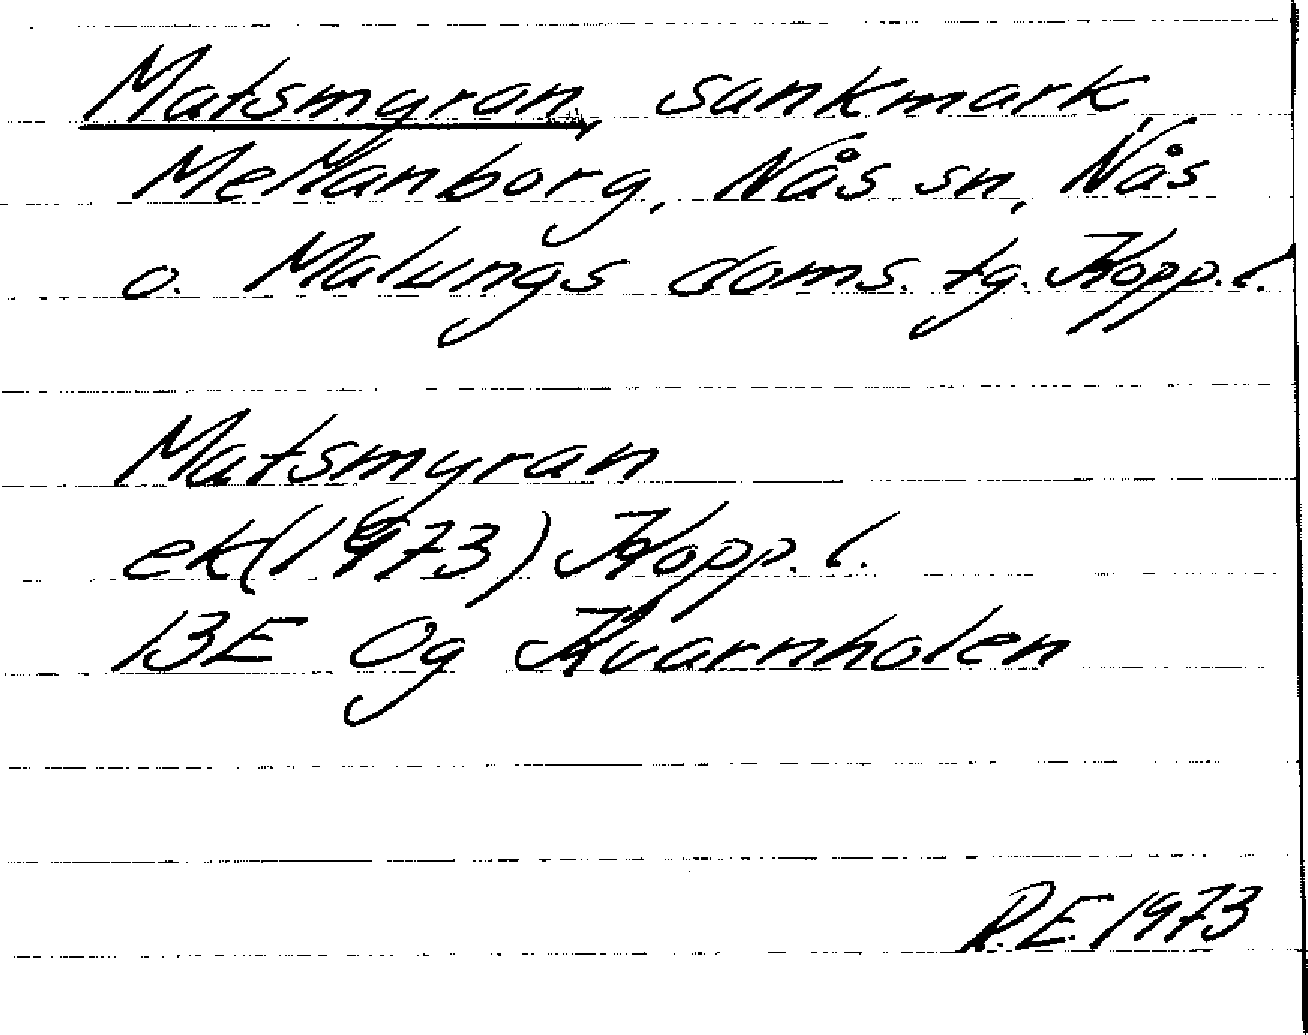 Matsmyran, sankmark,
Mellanborg, Nås sn, Nås
o. Malungs doms. tg. Kopp. l.
Matsmyran
ek(1973) Kopp. l.
13E 0g Kvarnholen
R.E. 1973